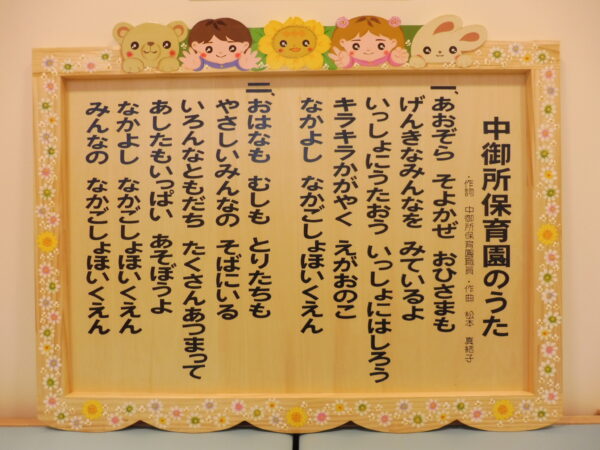 中御所保育園のうた
・作詞 中御所保育園職員 ・作曲 松本 真結子
一、あおぞら そよかぜ おひさまも
げんきなみんなを みているよ
いっしょにうたおう いっしょにはしろう
キラキラかがやく えがおのこ
なかよし なかごしょほいくえん
二、おはなも むしも とりたちも
やさしいみんなの そばにいる
いろんなともだち たくさんあつまって
あしたもいっぱい あそぼうよ
なかよし なかごしょほいくえん
みんなの なかごしょほいくえん